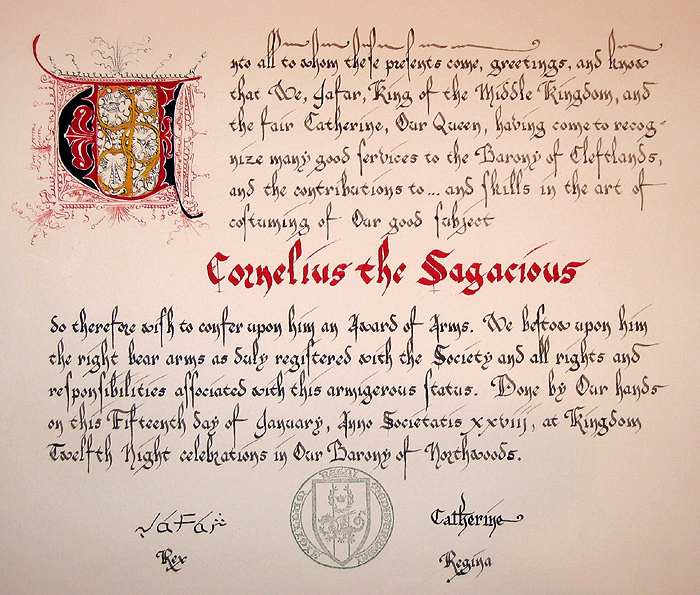 Unto all to whom these presents come, greetings, and know
that We, Jafar, King of the Middle Kingdom, and
the fair Catherine, Our Queen, having come to recog-
nize many good services to the Barony of Cleftlands,
and the contributions to ... and skills in the art of
costuming of Our good subject
Cornelius the Sagacious
do therefore wish to confer upon him an Award of Arms. We bestow upon him
the right bear arms as duly registered with the Society and all rights and
responsibilities associated with this armigerous status. Done by Our hands
on this Fifteenth day of January, Anno Societatis xxviij, at Kingdom
Twelfth Night celebrations in Our Barony of Northwoods.
Jafar Catherine
Rex Regina